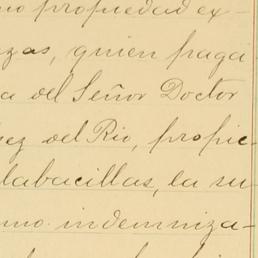 no propiedad ex-
zas, quien paga
a del Señor Doctor
ez del Rio, propie-
labacillas, la su
mo indemniza-